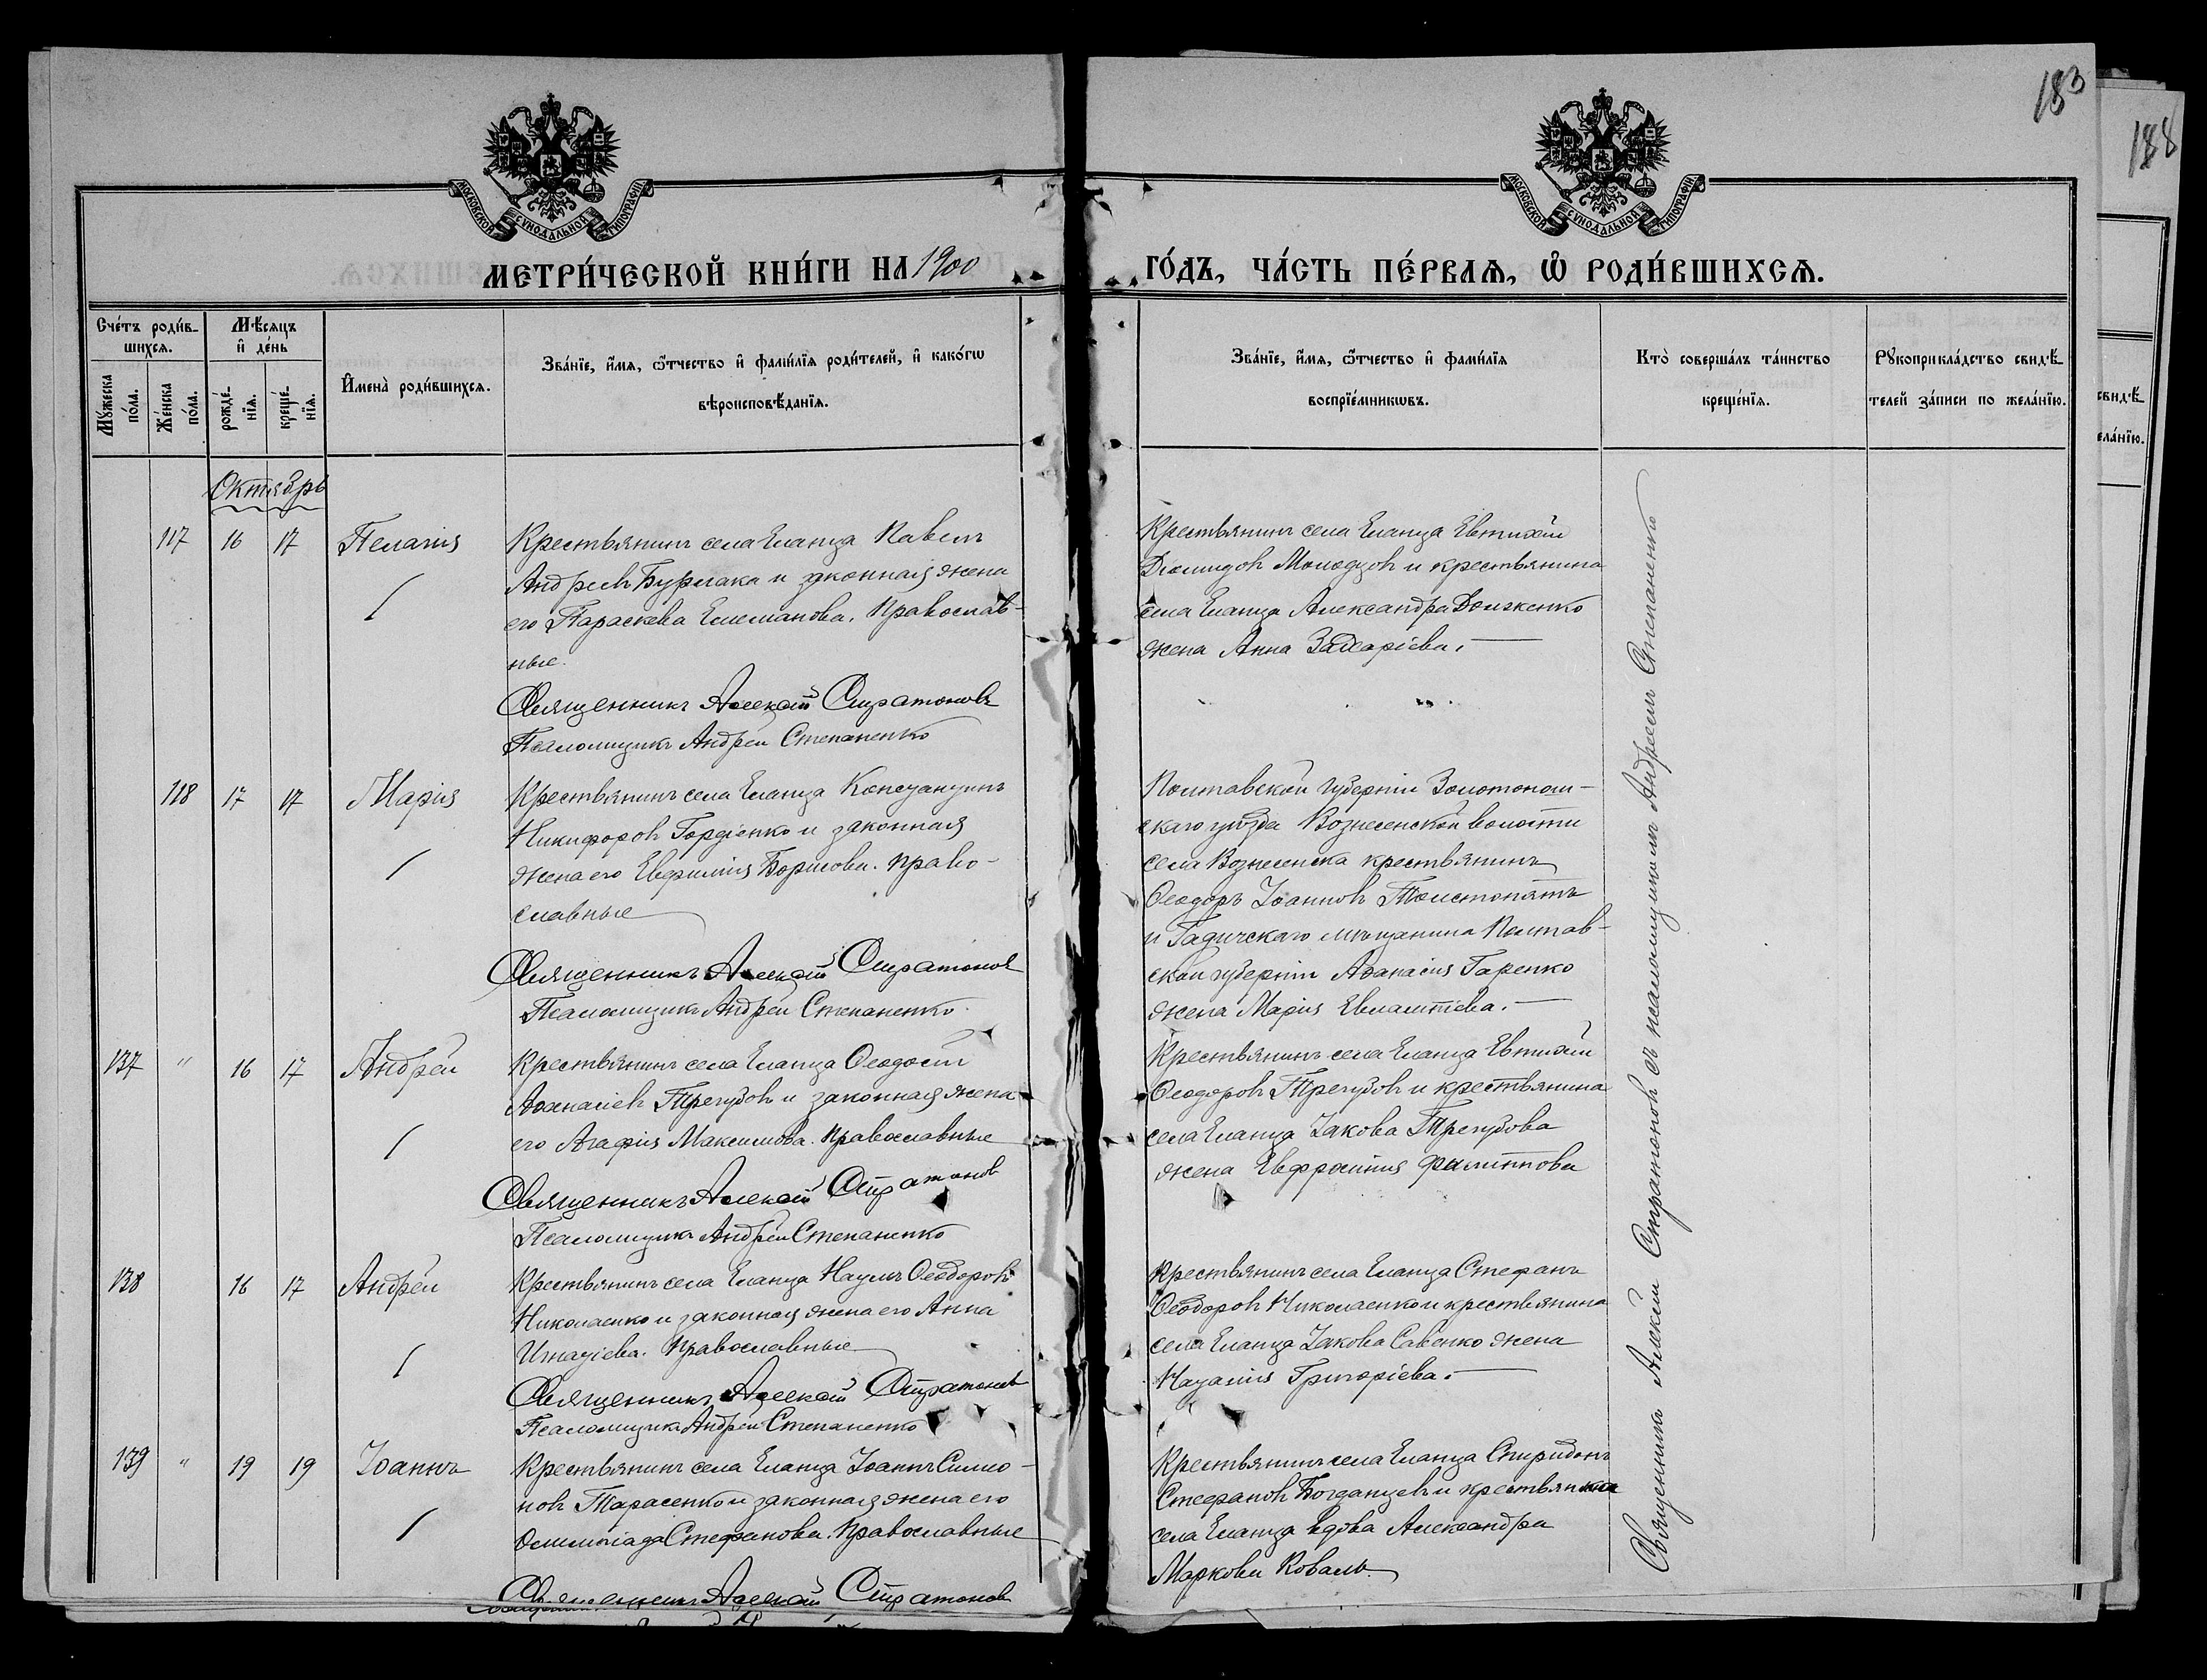 183
188
МОСКОВСКОЙ СѴНОДАЛЬНОЙ ТИПОГРАФІИ
МОСКОВСКОЙ СѴНОДАЛЬНОЙ ТИПОГРАФІИ
МЕТРИ́ЧЕСКОЙ КНИ́ГИ НА 1900
ГО́ДЪ, ЧА́СТЬ ПЕ́РВАѦ, Ѡ҆ РОДИ́ВШИХСѦ.
Сче́тъ роди́в-
шихсѧ.
Мѣ́сѧцъ
и҆ де́нь
Мꙋ́жеска
по́ла.
Же́нска
по́ла.
рожде́-
нїѧ.
креще́-
нїѧ.
И҆мена̀ роди́вшихсѧ.
Зва́нїе, и҆́мѧ, ѻ҆́тчество и҆ фамі́лїѧ роди́телей, и҆ како́гѡ
вѣроисповѣ́данїѧ.
Зва́нїе, и҆́мѧ, ѻ҆́тчество и҆ фами́лїѧ
воспрїе́мникѡвъ.
Кто̀ соверша́лъ та́инство
креще́нїѧ.
Рꙋкоприкла́дство свидѣ́-
телей за́писи по жела́нїю.
свидѣ́-
ела́нїю.
Октябрь
117 16 17 Пелагія
Крестьянинъ села Еланца Павелъ
Андреевъ Бурлака и законная жена
его Параскева Емеліанова. Православ-
ные.
Священникъ Алексѣй Стратоновъ
Псаломщикъ Андрей Степаненко
Крестьянинъ села Еланца Евтихій
Діомидовъ Молодцовъ и крестьянина
села Еланца Александра Долженко
жена Анна Захаріева.
118 17 17 Марія
Крестьянинъ села Еланца Константинъ
Никифоровъ Гордіенко и законная
жена его Евфимія Борисова. Право-
славные
Священникъ Алексѣй Стратоновъ
Псаломщикъ Андрей Степаненко.
Полтавской губерніи Золотонош-
скаго уѣзда Вознесенской волости
села Вознесенска крестьянинъ
Ѳеодоръ Іоанновъ Толстопятъ
и Гадичскаго мѣщанина Полтав-
ской губерніи Аѳанасія Гаренко
жена Марія Евлампіева.
137 " 16 17 Андрей
Крестьянинъ села Еланца Ѳеодосій
Аѳанасіевъ Трегубовъ и законная жена
его Агафія Максимова. Православные
Священникъ Алексѣй Стратонов
Псаломщикъ Андрей Степаненко
Крестьянинъ села Еланца Евтихій
Ѳеодоровъ Трегубовъ и крестьянина
села Еланца Іакова Трегубова
жена Евфросинія Филиппова
138 16 17 Андрей
Крестьянинъ села Еланца Наумъ Ѳеодоровъ
Николаенко и законная жена его Анна
Игнатіева. Православные
Священникъ Алексѣй Стратоновъ
Псаломщикъ Андрей Степаненко
Крестьянинъ села Еланца Стефанъ
Ѳеодоровъ Николаенко и крестьянина
села Еланца Іакова Савенко жена
Наталія Григоріева.
139 " 19 19 Іоаннъ
Крестьянинъ села Еланца Іоаннъ Симео-
новъ Тарасенко и законная жена его
Олимпіада Стефанова. Православные
Священникъ Алексѣй Стратоновъ
Крестьянинъ села Еланца Спиридонъ
Стефановъ Богданцевъ и крестьянка
села Еланца вдова Александра
Маркова Коваль.
Священникъ Алексѣй Стратоновъ съ псаломщикомъ Андреемъ Степаненко